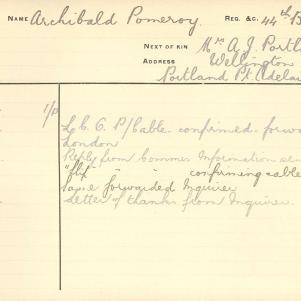 NAME Archibald Pomeroy. REG. &C. 44th B
NEXT OF KIN Mrs A. J. Portl
ADDRESS Wellington
Portland Pl. Adelai
1/P
L.C.G. P/Cable confirmed forwa
London
Reply from Commr Information
" " confirming cable
Same forwarded Inquirer
Letter of thanks from Inquirer.